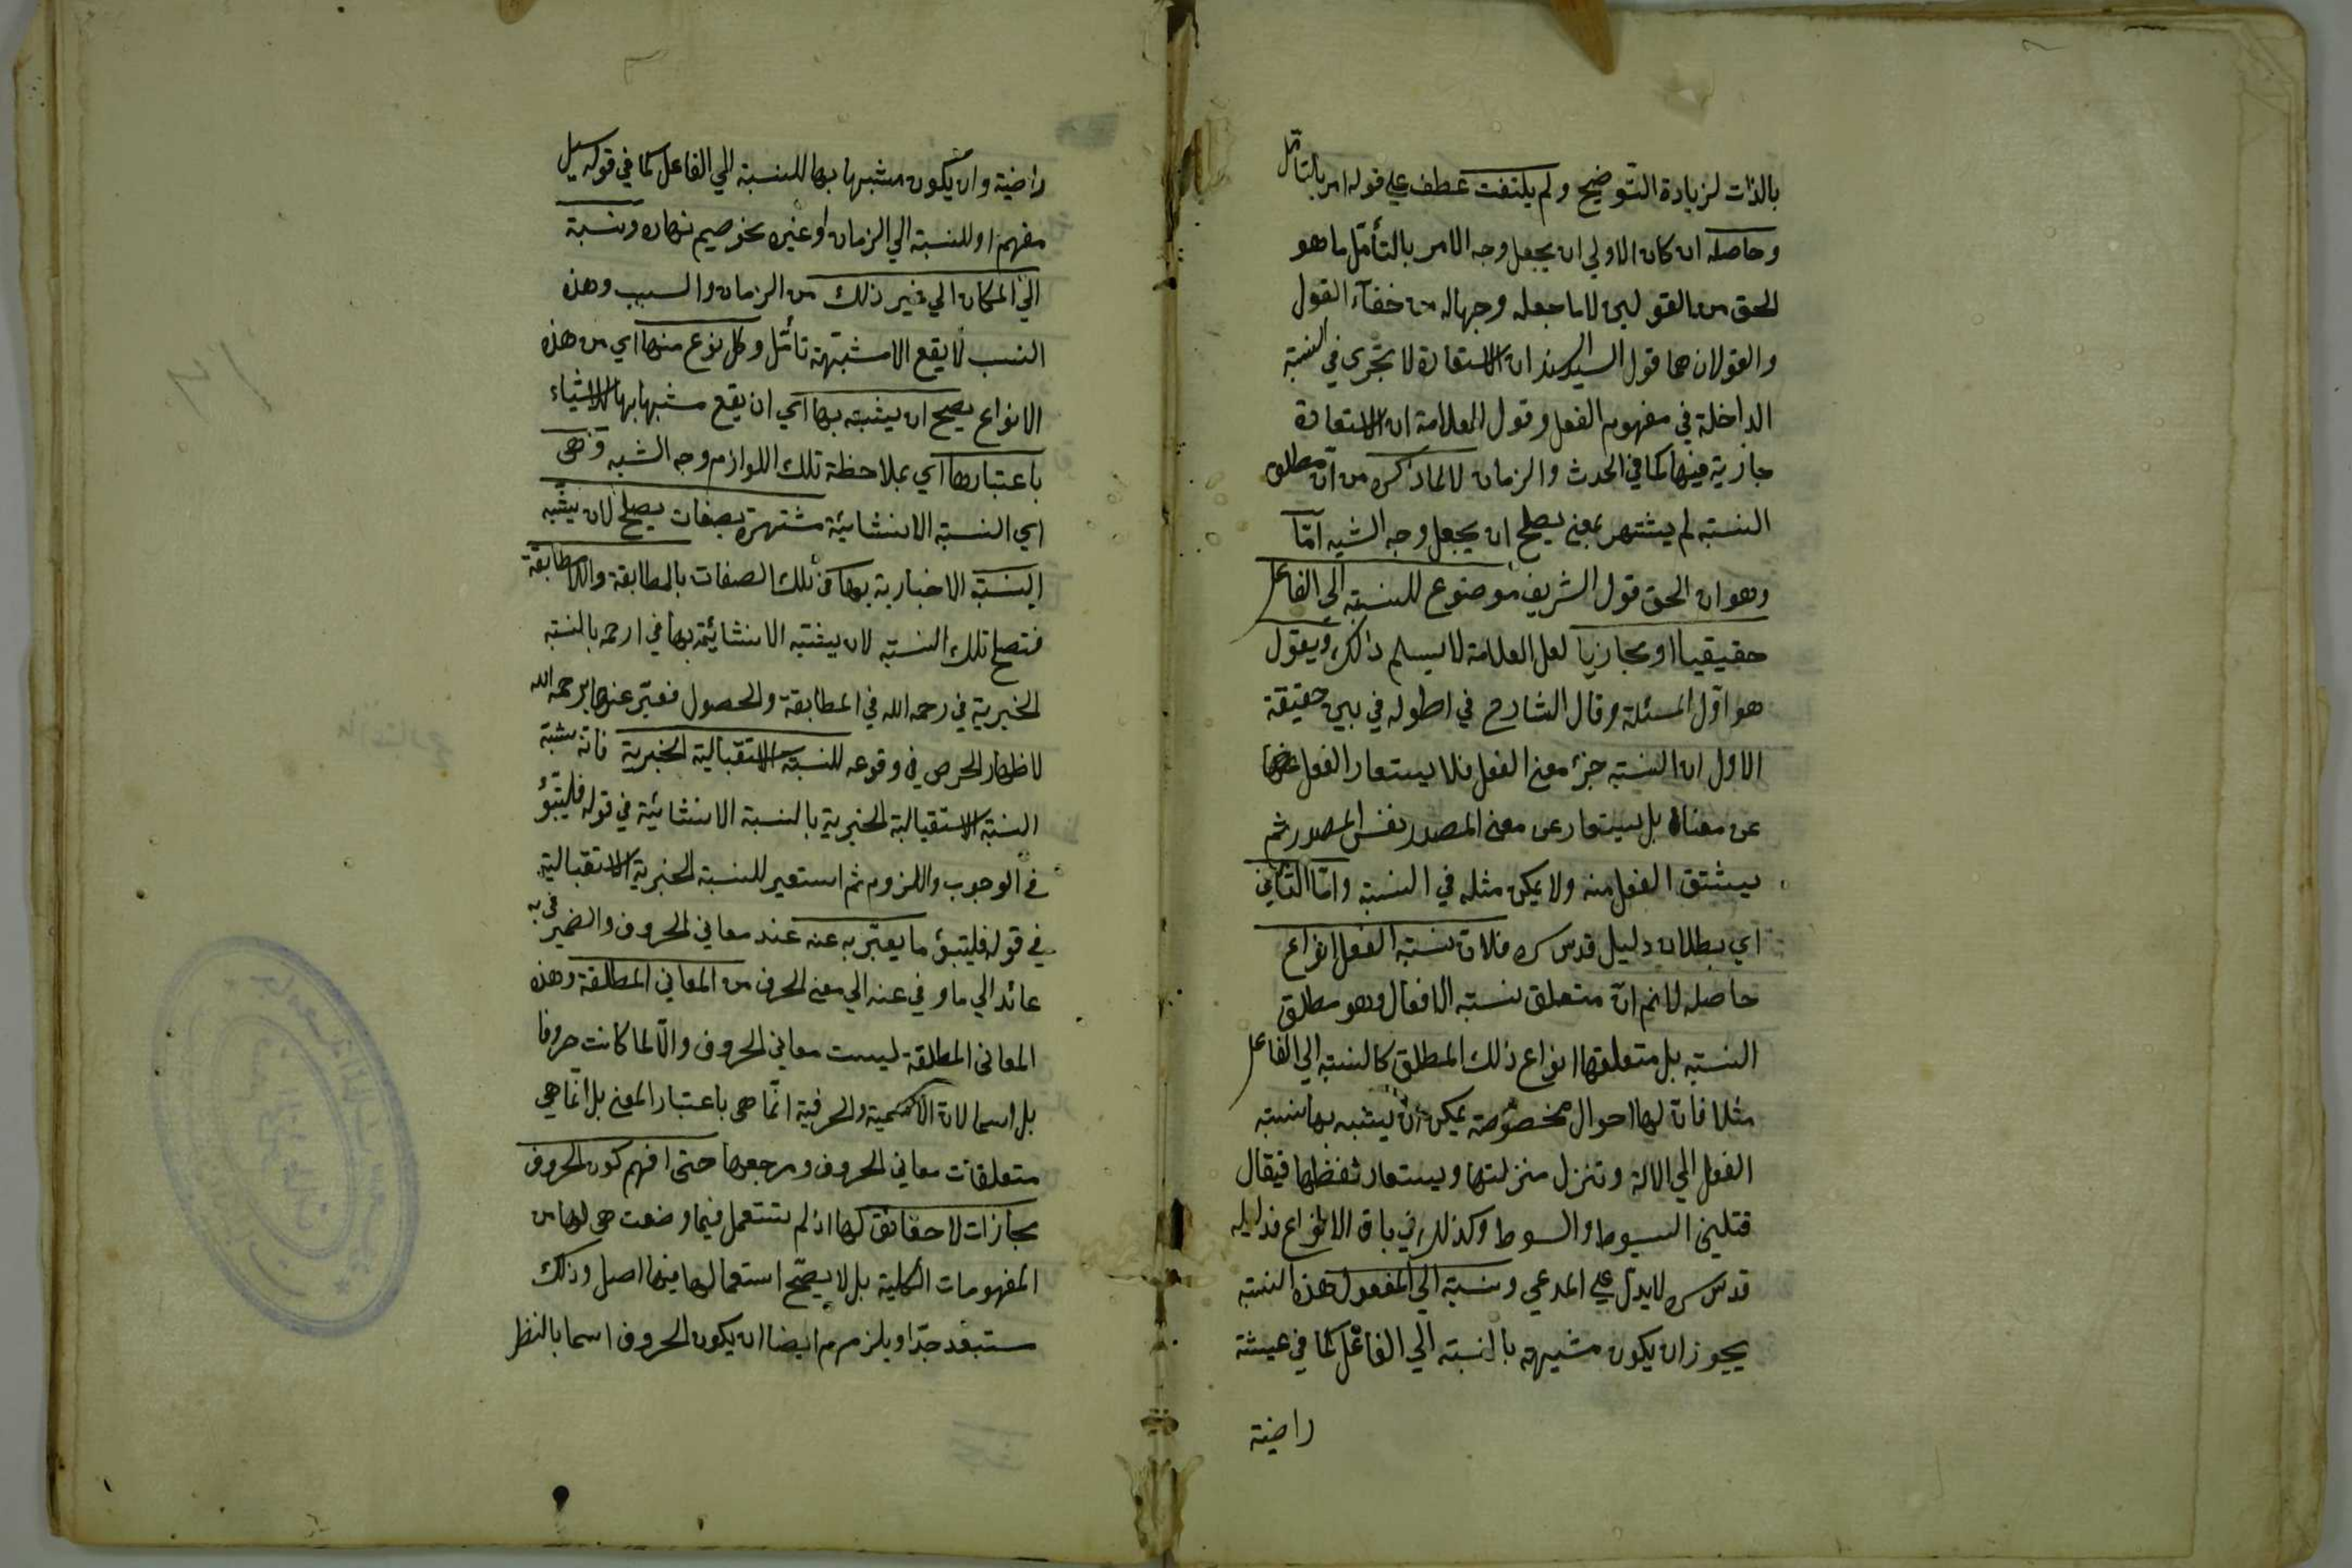 بالذات لزيادة التوضيح ولم يلتفت عطف على قوله امر بالتأمل
وحاصله ان كان الاولى ان يجعل وجه الامر بالتأمل ما هو
الحق من القولين لا ما جعله وجها له من خفآء القول
والقولان هما قول السيد السند ان الاستعارة لا تجرى في النسبة
الداخلة في مفهوم الفعل وقول العلامة ان الاستعارة
جارية فيها كما في الحدث والزمان لا لما ذكره من ان مطلق
النسبة لم يشتهر بمعنى يصلح ان يجعل وجه الشبه امّا
وهو ان الحق قول الشريف موضوع للنسبة الى الفاعل
حقيقيا او مجازيا لعل العلامة لا يسلم ذلك ويقول
هو اوّل المسئلة وقال الشارح في اطوله في بيان حقيقة
الاول ان النسبة جزء معنى الفعل فلا يستعار الفعل
عن معناه بل يستعار عن معنى المصدر نفس المصدر ثم
يشتق الفعل منه ولا يمكن مثله في النسبة وامّا الثاني
اي بطلان دليل قدس سره فلان نسبة الفعل انواع
حاصله لا نم انّ متعلق نسبة الافعال وهو مطلق
النسبة بل متعلقها انواع ذلك المطلق كالنسبة الى الفاعل
مثلا فانّ لها احوال مخصوصة يمكن ان يشبه بها نسبة
الفعل الي الالة وتنزل منزلتها ويستعار لفظها فيقال
قتلني السيوط والسوط وكذلك في باق الانواع فدليله
قدس سره لا يدل على المدعي ونسبة الى المفعول هذه النسبة
يجوز ان يكون مشبهة بالنسبة الى الفاعل كما في عيشة
راضية
راضية وان يكون مشبها بها للنسبة الي الفاعل كما في قوله سيل
مفهم او للنسبة الي الزمان او غيره نحو صيم نهاره ونسبة
الى المكان الي غير ذلك من الزمان والسبب وهذه
النسب لا يقع الا مشبهة تأمل وكل نوع منها اي من هذه
الانواع يصح ان يشبه بها اي ان يقع مشبها بها للاشياء
باعتبارها اي بملاحظة تلك اللوازم وجه الشبه وهى
اي النسبة الانشائية مشتهرة بصفات يصلح لان يشبه
النسبة الاخبارية بها في تلك الصفات بالمطابقة واللامطابقة
فتصلح تلك النسبة لان يشبه الانشائية بها في ارحم بالنسبة
الخبرية في رحمه الله في المطابقة والحصول فعبّر عنها برحمه الله
لاظهار الحرص في وقوعه للنسبة الاستقبالية الخبرية فانه شبه
النسبة الاستقبالية الخبرية بالنسبة الانشائية في قوله فليتبوّء
في الوجوب واللزوم ثم استعير للنسبة الخبرية الاستقبالية
في قوله فليتبوّء ما يعبّر به عنه عند معاني الحروف والضمير في به
عائد الي ما وفي عنه الي معنى الحرف من المعاني المطلقة وهذه
المعانى المطلقة ليست معاني الحروف والّا لما كانت حروفا
بل اسما لان الاسمية والحرفية انّما هى باعتبار المعنى بل انّما هي
متعلقات معاني الحروف ومرجعها حتى افهم كون الحروف
مجازات لا حقائق لها اذ لم تستعمل فيما وضعت هى لها من
المفهومات الكلية بل لا يصحّ استعمالها فيها اصلا وذلك
مستبعد جدّا ويلزم ايضا ان يكون الحروف اسما بالنظر